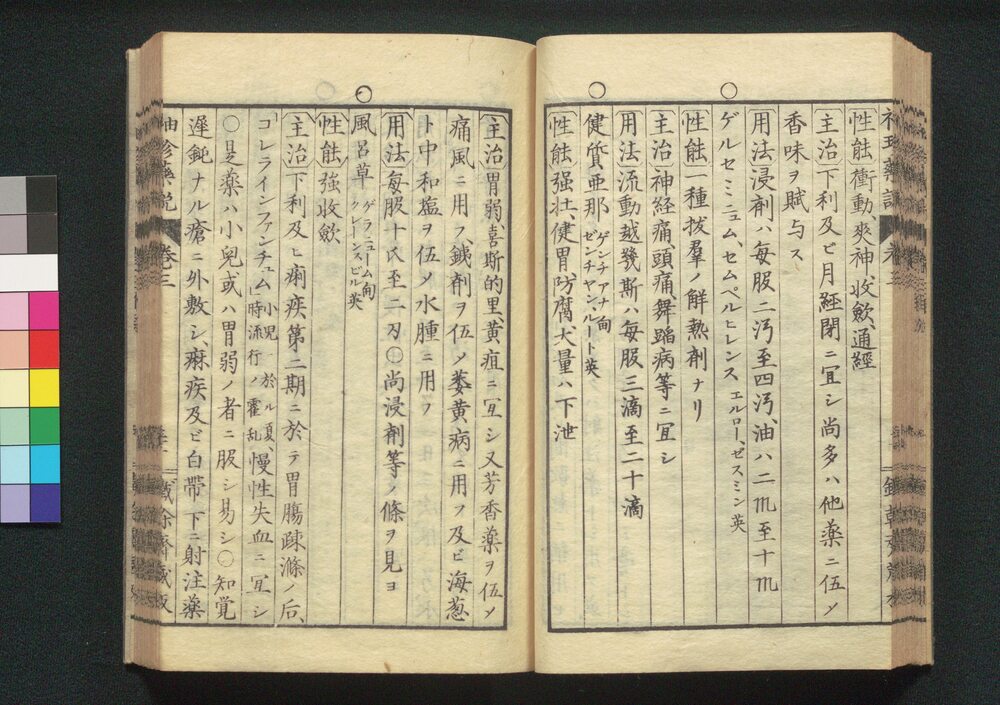 性能 衝動、爽神、收歛、通經
主治 下利及ヒ月經閉ニ宜シ尚多ハ他薬ニ伍ノ
香味ヲ賦与ス
用法 浸剤ハ每服二沔至四沔、油ハ二𱁬至十𱁬
ゲルセミニュム、セムペルヒレンス エルロー、ゼスミン英
性能 一種拔羣ノ解熱剤ナリ
主治 神經痛、頭痛、舞蹈病等ニ宜シ
用法 流動越幾斯ハ每服三滴至二十滴
健質亜那 ゲンチアナ甸 ゼンチヤン、ルート英
性能 强壮、健胃、防腐大量ハ下泄
主治 胃弱、喜斯的里黄疸ニ宜シ又芳香薬ヲ伍ノ
痛風ニ用フ鉄剤ヲ伍ノ萎黄病ニ用フ及ビ海葱
ト中和塩ヲ伍ノ水腫ニ用フ
用法 每服十氏至二刃○尚浸剤等ノ條ヲ見ヨ
風呂草 ゲラニューム甸 クレーンスビル英
性能 強收歛
主治 下利及ヒ痢疾第二期ニ於テ胃腸疎滌ノ后、
「コレラインファンチュム」小児ニ於ル夏時流行ノ霍乱 慢性失血ニ宜シ
○是薬ハ小兒或ハ胃弱ノ者ニ服シ易シ○知覚
遅鈍ナル瘡ニ外敷シ、痳疾及ビ白帶下ニ射注薬
袖珍薬説 卷之三